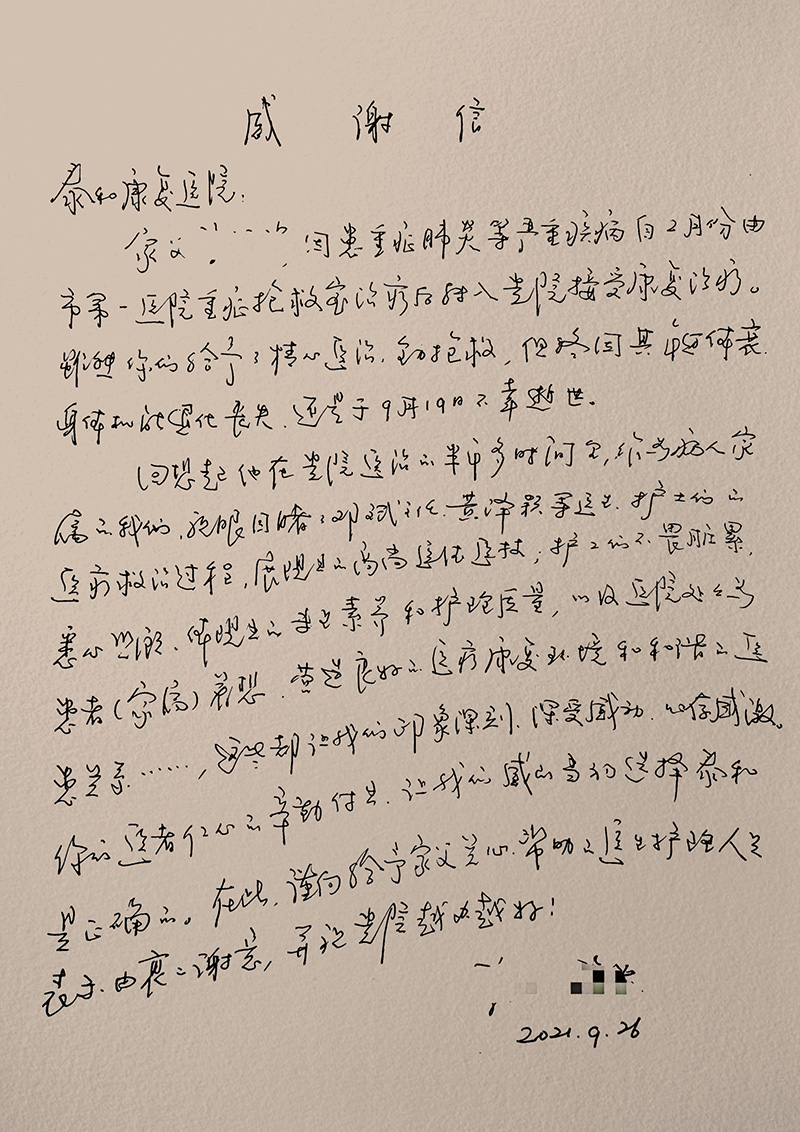 感谢信
泰和康复医院:
家父 因患重症肺炎等严重疾病自2月份由
市第一医院重症抢救室治疗后转入贵院接受康复治疗。
虽然你们给予了精心医治、全力抢救,但终因其年迈体衰、
身体机能退化丧失,还是于9月19日不幸逝世。
回想起他在贵院医治的半年多时间里,作为病人家
属的我们,亲眼目睹了邓斌主任、黄泽颖等医生、护士们的
医疗救治过程,展现出的高尚医德医技;护工们不畏脏累,
悉心照顾、体现出的专业素养和护理质量,以及医院处处为
患者(家属)着想、营造良好的医疗康复环境和和谐的医
患关系……,这些都让我们印象深刻、深受感动、心存感激。
你们医者仁心的辛勤付出,让我们感到当初选择泰和
是正确的。在此,谨向给予家父关心、帮助的医生护理人员
表示由衷的谢意,并祝贵院越办越好!
2021.9.26